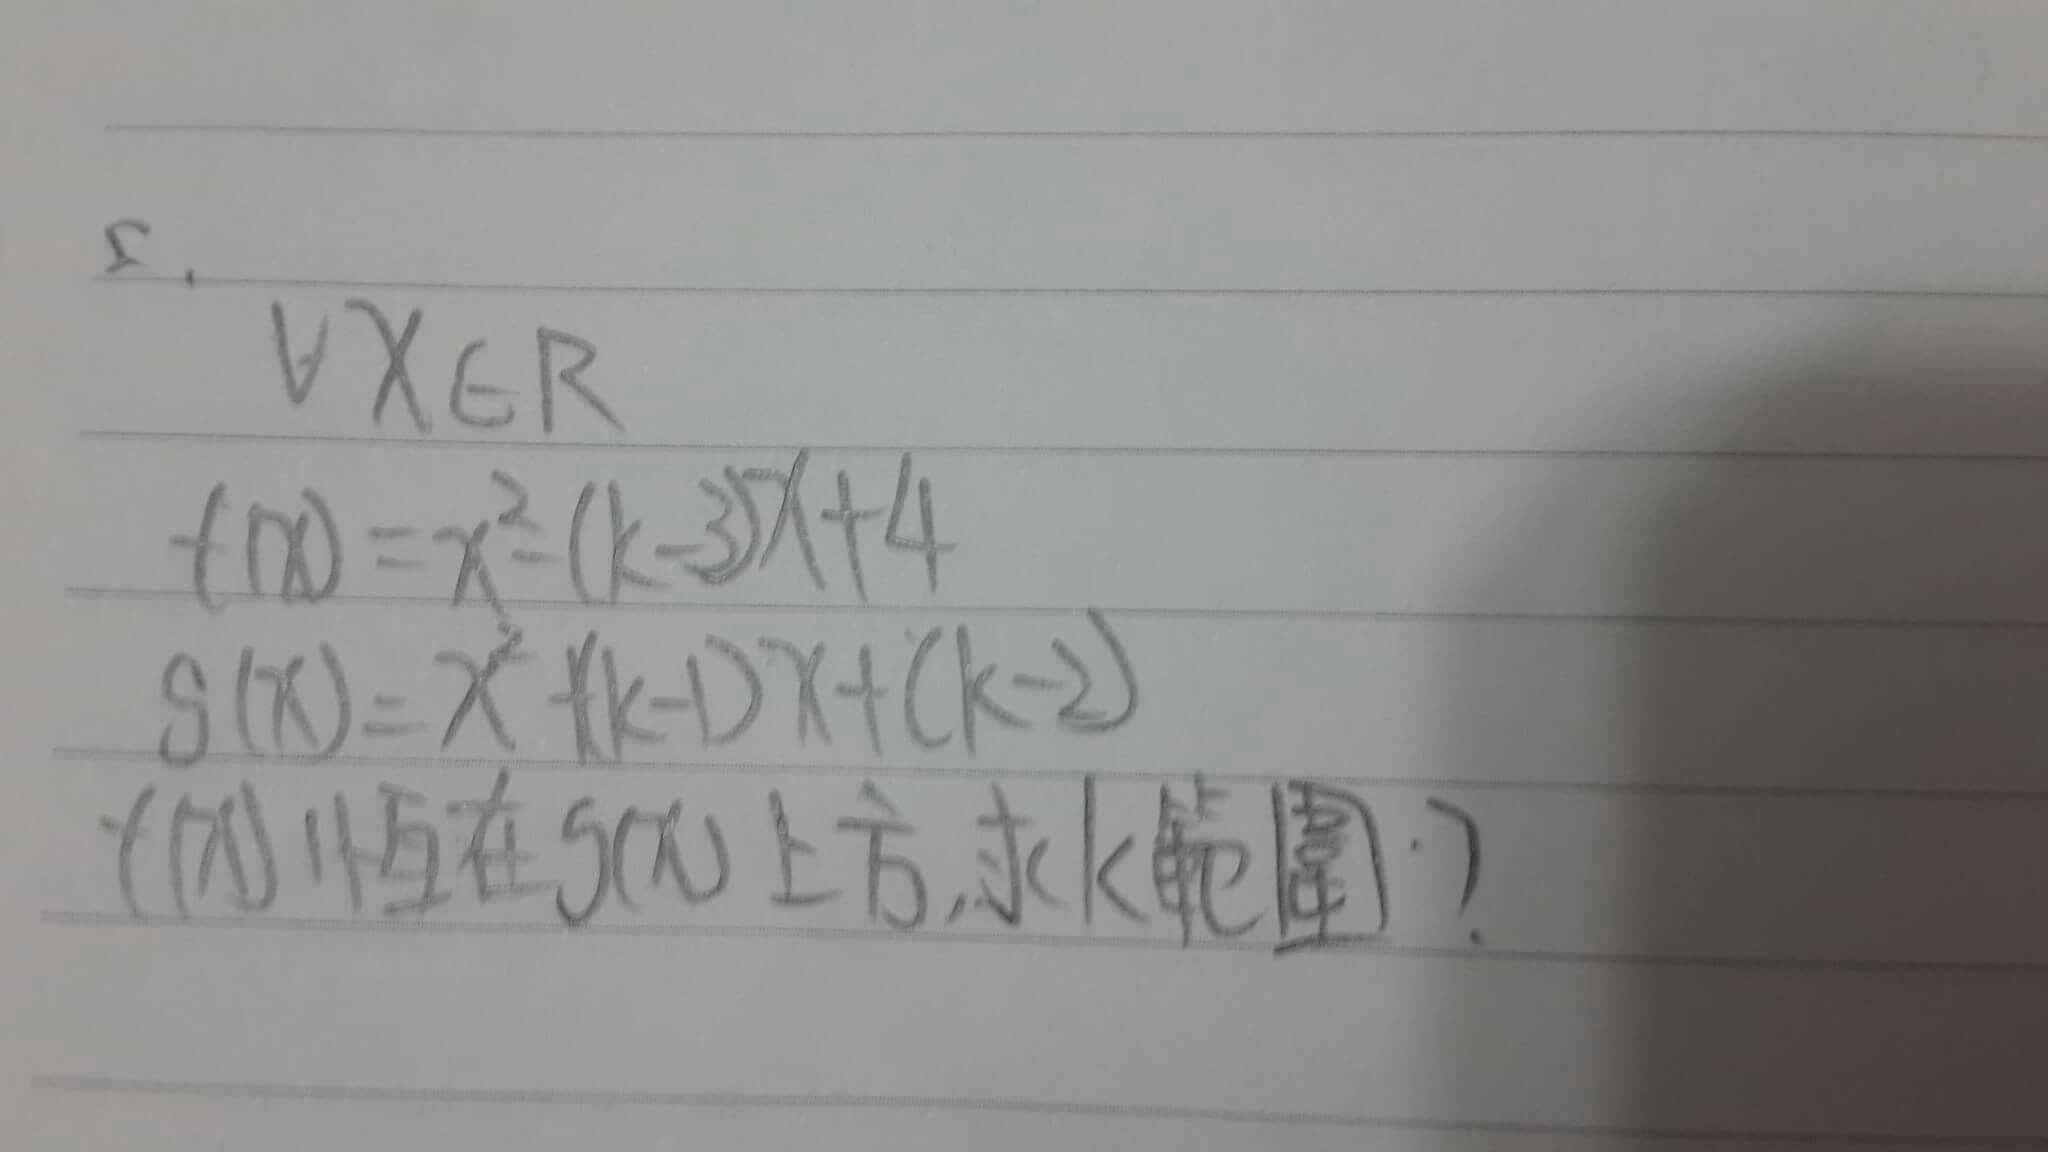 5.
∀X∈R
f(x)=x²-(k-3)x+4
g(x)=x²+(k-1)x+(k-2)
f(x)恆在g(x)上方,求k範圍?